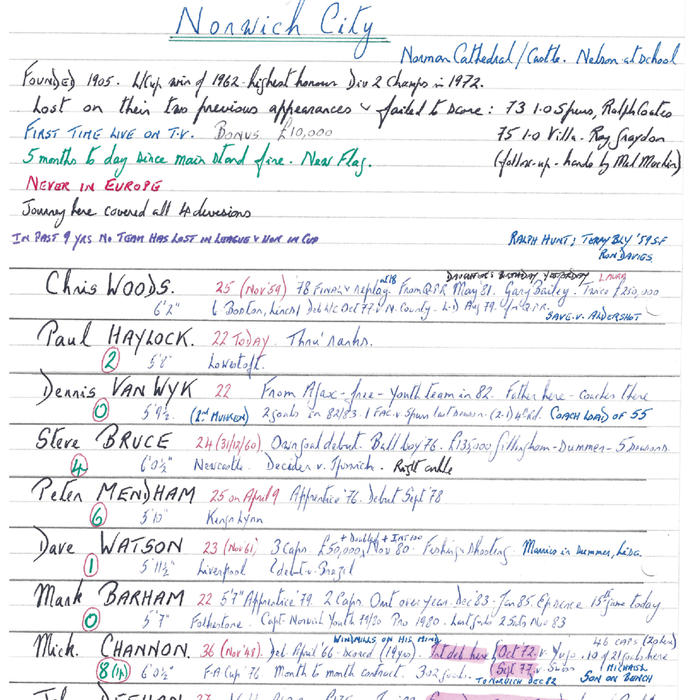 Norwich City
Norman Cathedral / Castle. Nelson at School
Founded 1905. L/Cup win of 1962 - highest honour Div 2 Champs in 1972.
Lost on their two previous appearances & failed to score: 73 1.0 Spurs, Ralph Coates
First time live on T.V. Bonus £10,000 75 1.0 Villa. Ray Graydon
5 months to day since main stand fire. New Flag. (follow-up - hands by Mel Machin)
Never in Europe
Journey here covered all 4 divisions
In past 9 yrs no team has lost in League & won in Cup
Ralph Hunt: Terry Bly '59 S.F
Ron Davies
Daughter's birthday yesterday Laura
Chris Woods. 25 (Nov '59) '78 Final & replay at 18 From Q.P.R May '81. Gary Bailey. Twice £250,000
6'2" Boston, Lincs Deb L/C Oct 77 v N. County. L.D Aug 79. for Q.P.R.
Save. v. Aldershot
Paul Haylock. 22 Today. Thru' ranks.
2 5'8" Lowestoft.
Dennis Van Wyk 22 From Ajax - free - Youth team in 82. Father here - coaches there
0 5'9½ (2nd Muhren) 2 goals in 82/83. 1 FAC v Spurs last season. Coach load of 55
Steve Bruce 24 (31/12/60). Own goal debut. Ball boy 76. £135,000 Gillingham - Summer - 5
4 6'0½" Newcastle. Decider v. Ipswich. Right ankle
Peter Mendham 25 on April 9 Apprentice '76. Debut Sept '78
6 5'10" Kings Lynn
Dave Watson 23 (Nov 61) 3 Caps £50,000 Nov 80. Fishing & Shooting. Marries in Summer, Lisa.
1 5'11½" Liverpool debut v Brazil
Mark Barham 22 5'7" Apprentice '79. 2 Caps. Out over year. Dec '83 - Jan 85. Ep since 15th June today
0 5'7" Folkestone. Capt. Norwich Youth 79/80 Pro 1980. Last 2 Sots Nov 83
Windmills on his mind 46 caps
Mick. Channon 36 (Nov '48) Jol April '66 - scored (19yrs). 1st deb here Oct 72. v Yugo. 10 of 21 goals here
8 (1p) 6'0½" F.A Cup '76 Month to month contract. 302 goals. Sept 77 v Swiss Michael
To Norwich Dec 82 Son on bench